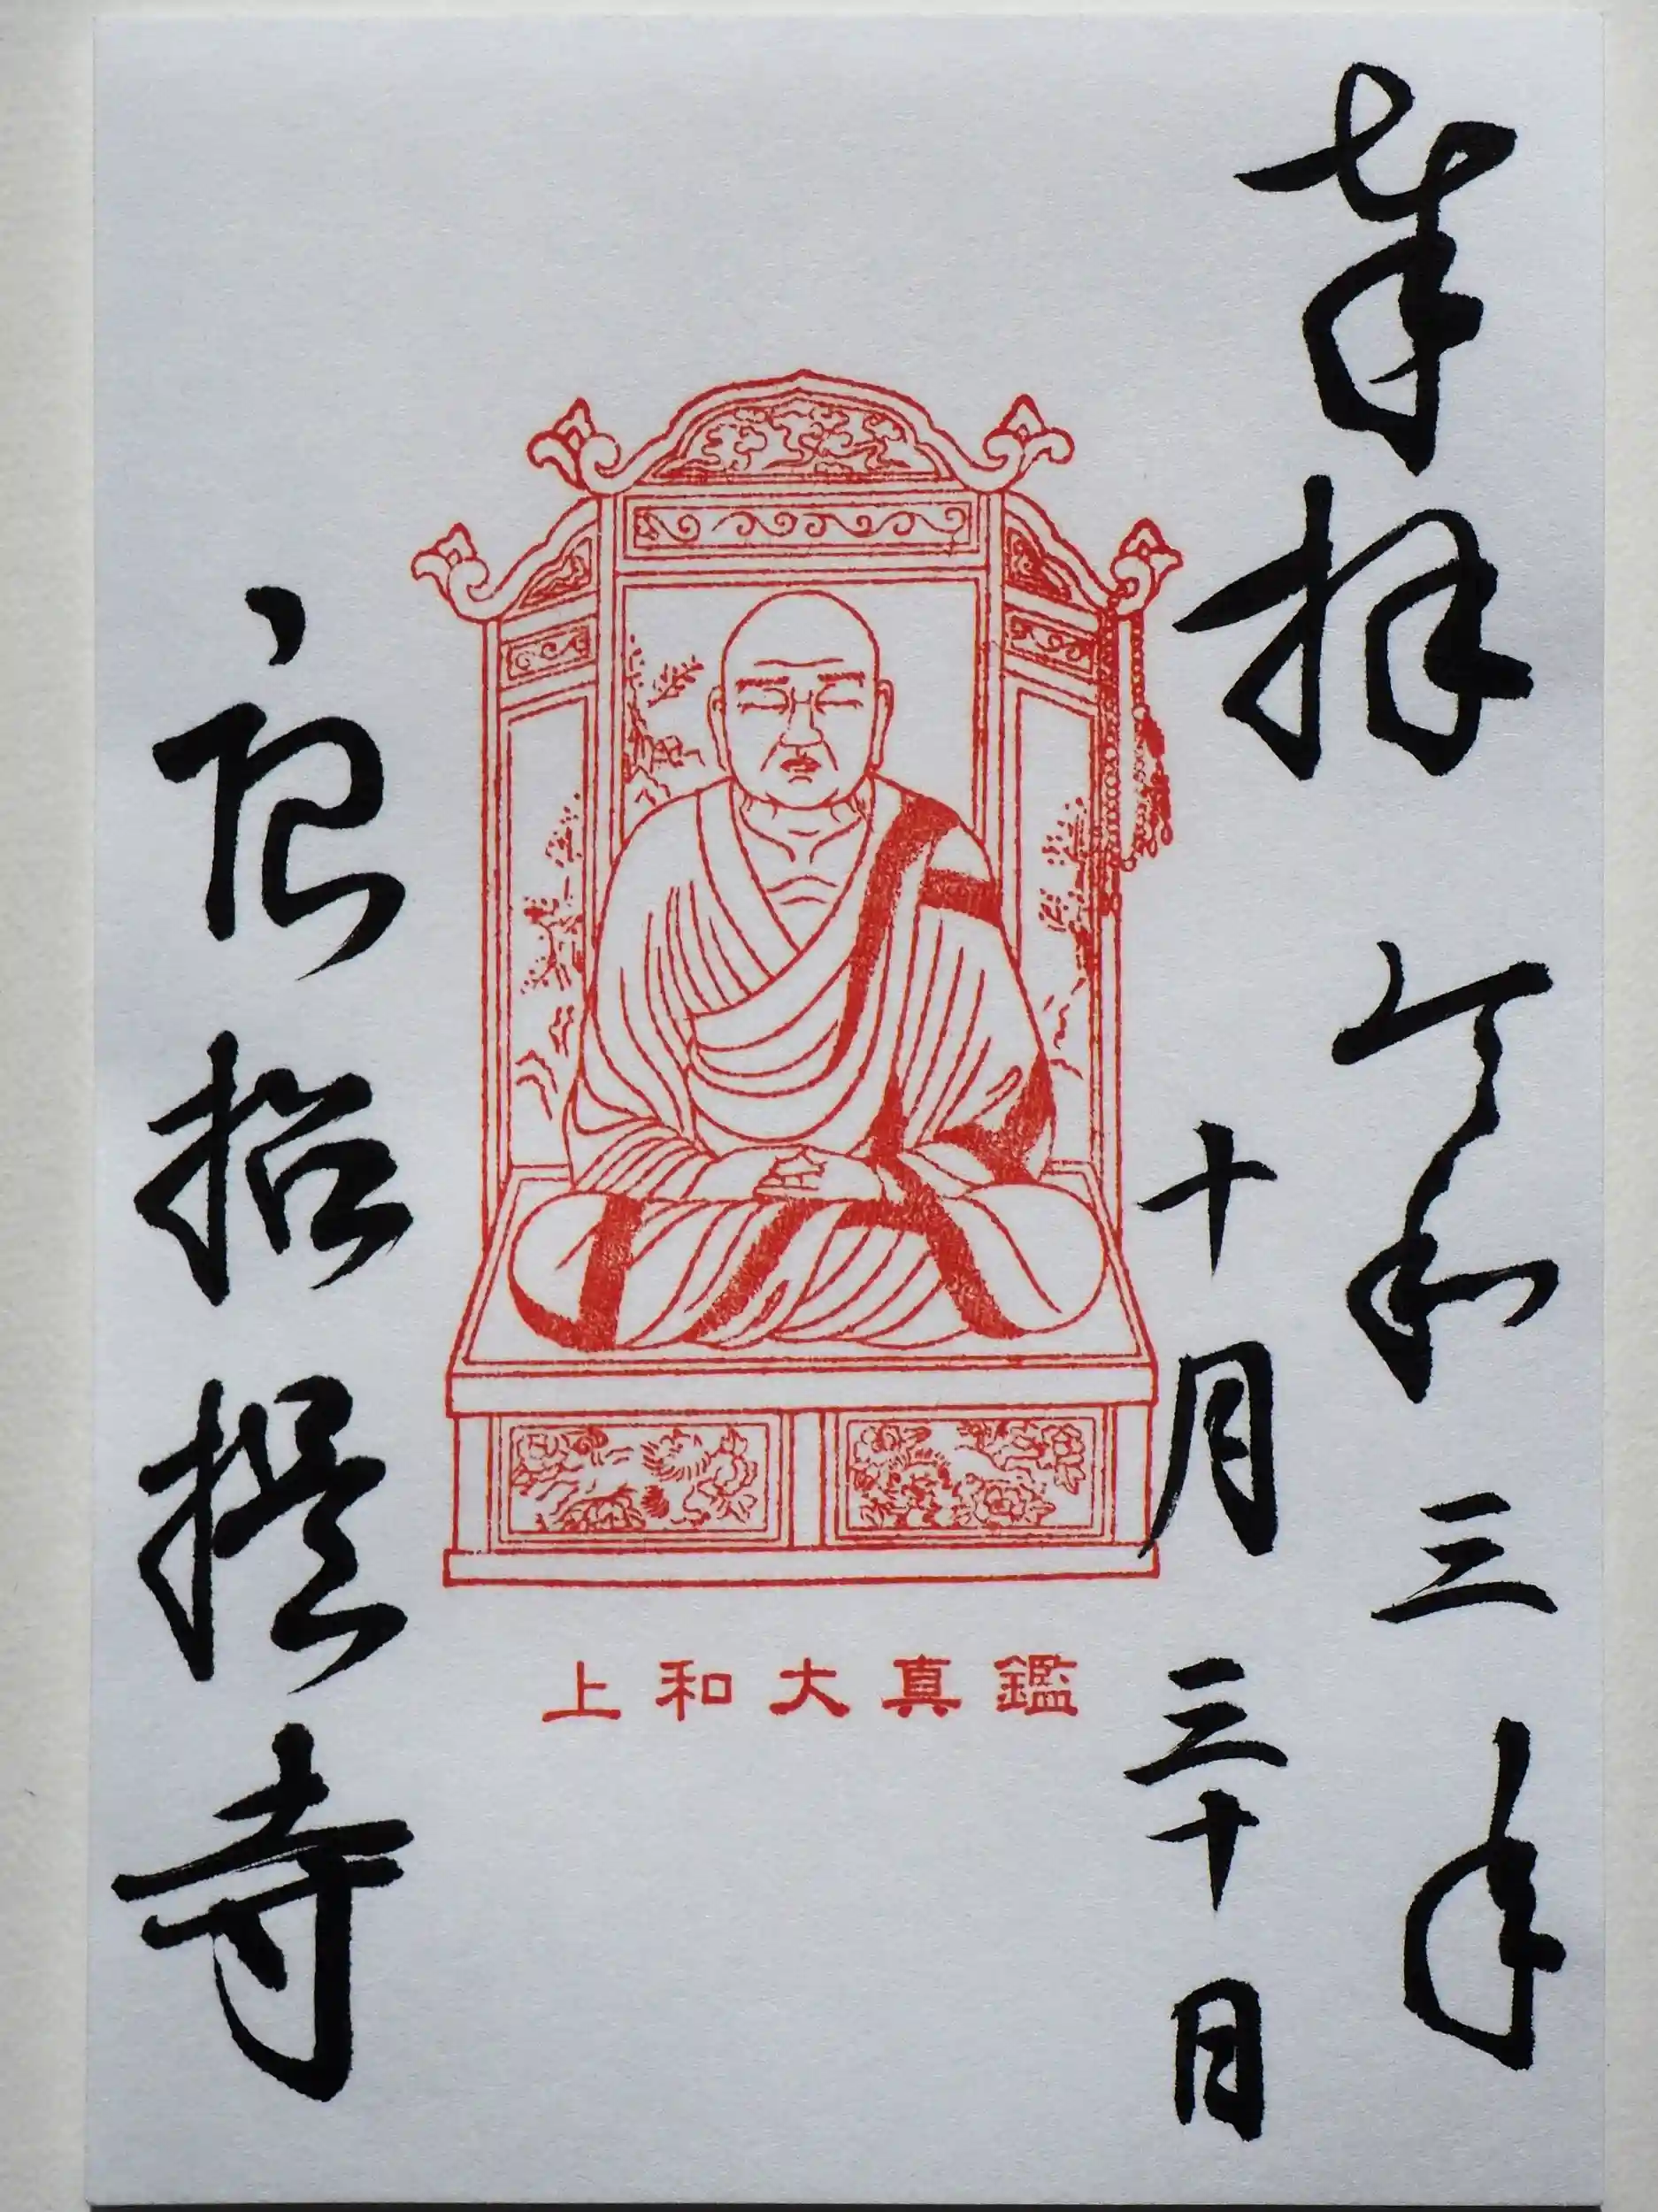 奉拝 令和三年
十月三十日
鑑真大和上
唐招提寺